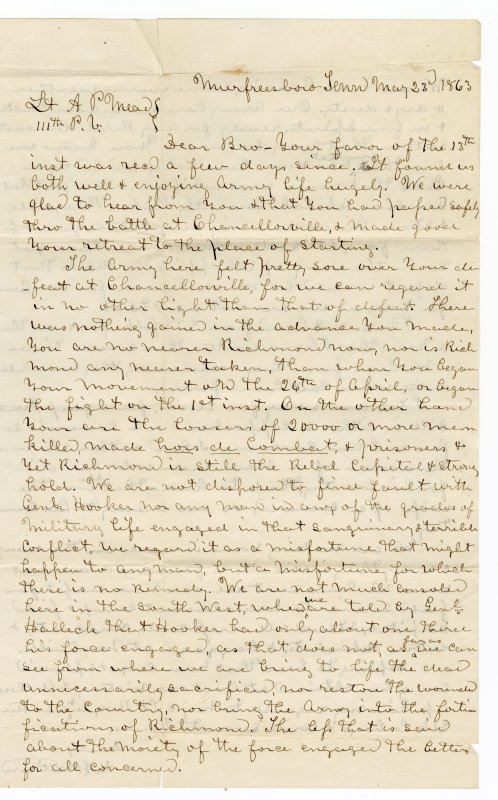 Murfreesboro Tenn May 23d 1863
Lt A P Mead
111th P. V.
Dear Bro- Your favor of the 13th
inst was recd a few days since. It found us
both well & enjoying Army life hugely. We were
glad to hear from you & that you had passed safely
thro the battle at Chancellorville, & made good
your retreat to the place of starting.
The Army here felt pretty sore over your de-
-feat at Chancellorville, for we can regard it
in no other light than that of defeat. There
was nothing gained in the advance you made,
you are no nearer Richmond now, nor is Rich
mond any nearer taken, than when you began
your movement on the 26th of April, or began
the fight on the 1st inst. On the other hand
your are the loosers of 20000 or more men
killed, made hors de Combat, & prisoners &
yet Richmond is still the Rebel Capital & strong
hold. We are not disposed to find fault with
Genl Hooker nor any man in any of the grades of
Military life engaged in that sanguinary & terrible
conflict, we regard it as a misfortune that might
happen to any man, but a misfortune for which
there is no remedy. We are not much consoled
here in the South West, when we are told by Genl
Halleck that Hooker had only about one third
his force engaged, as that does not as far as we can
see from where we are bring to life the dead
unnecessarily sacrificed, nor restore the wounded
to the Country, nor bring the Army into the forti
fications of Richmond. The less that is said
about the moiety of the force engaged the better
for all concerned.